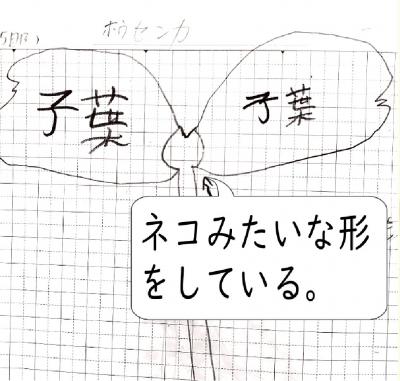 ホウセンカ
子葉
子葉
ネコみたいな形
をしている。